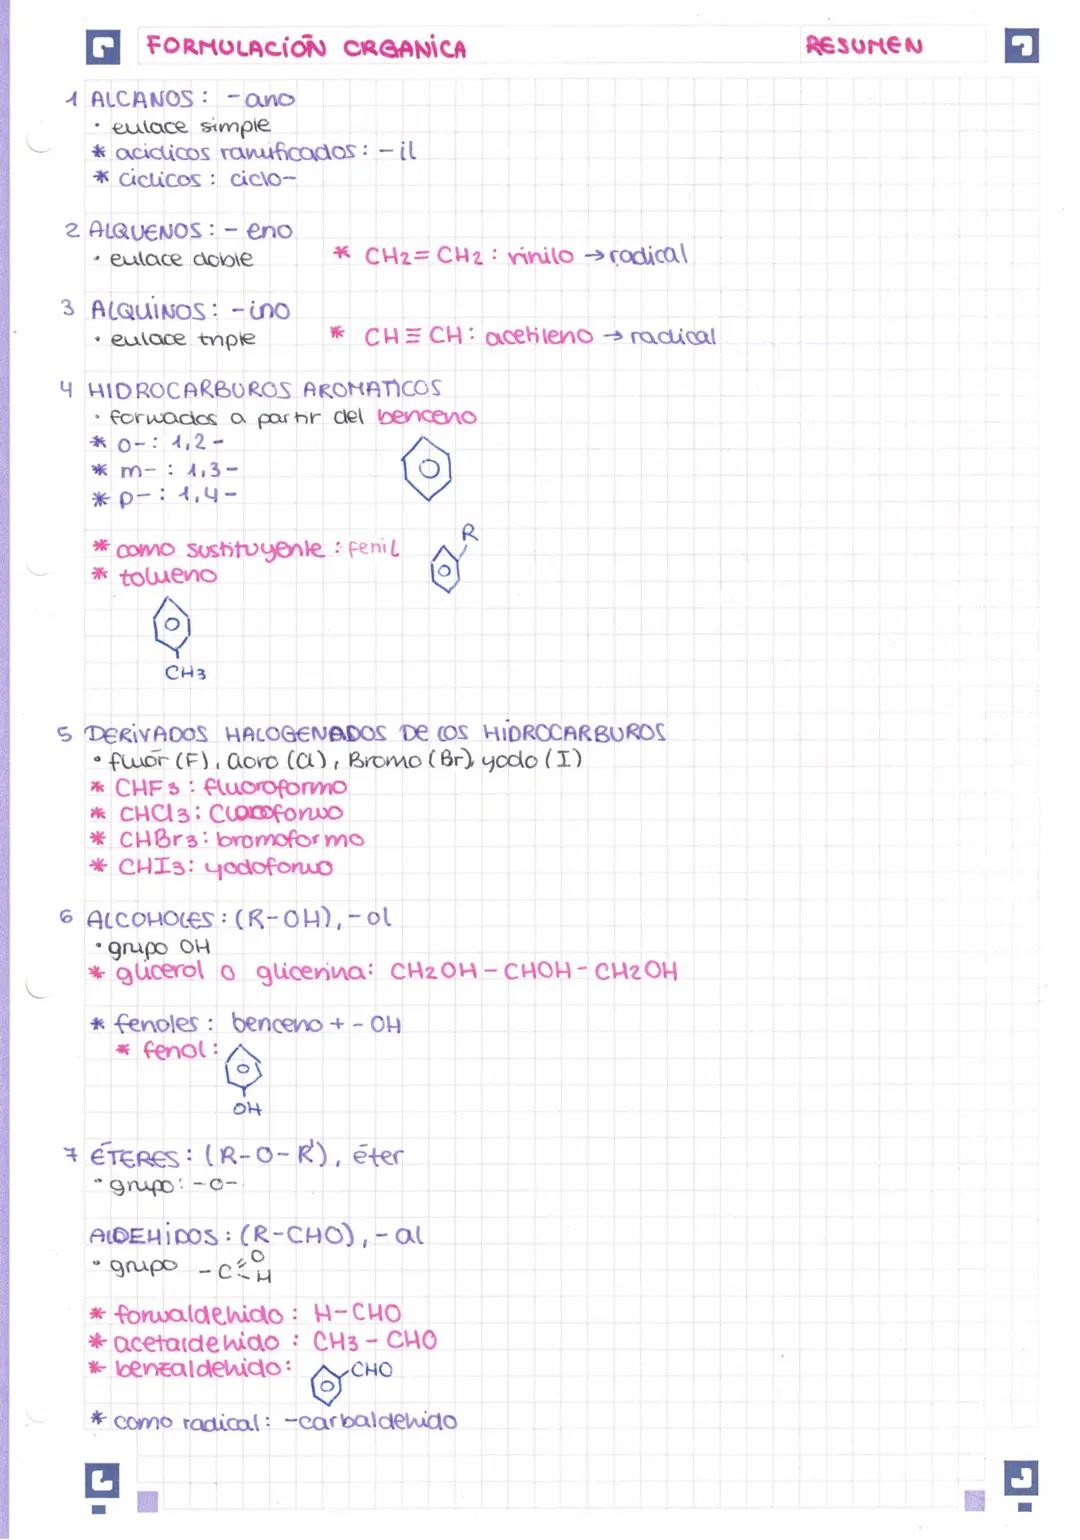 FORMULACIÓN ORGANICA RESUMEN
1 ALCANOS: -ano
• enlace simple
* aciclicos ramificados: -il
* ciclicos: ciclo-
2 ALQUENOS: -eno
• enlace doble
* CH2=CH2: vinilo → radical
3 ALQUINOS: -ino
• enlace triple
* CH≡CH: acetileno → radical
4 HIDROCARBUROS AROMATICOS
• formados a partir del benceno
* o-: 1,2-
* m-: 1,3-
* p-: 1,4-
* como sustituyente: fenil
R
* tolueno
CH3
5 DERIVADOS HALOGENADOS DE LOS HIDROCARBUROS
• fluór (F), cloro (Cl), Bromo (Br), yodo (I)
* CHF3: fluoroformo
* CHCl3: Cloroformo
* CHBr3: bromoformo
* CHI3: yodoformo
6 ALCOHOLES: (R-OH), -ol
• grupo OH
* glicerol o glicerina: CH2OH-CHOH-CH2OH
* fenoles: benceno + -OH
* fenol:
OH
7 ÉTERES: (R-O-R'), éter
• grupo: -O-
ALDEHIDOS: (R-CHO), -al
• grupo -C=O H
* formaldehido: H-CHO
* acetaldehido: CH3-CHO
* benzaldehido: CHO
* como radical: -carbaldehido